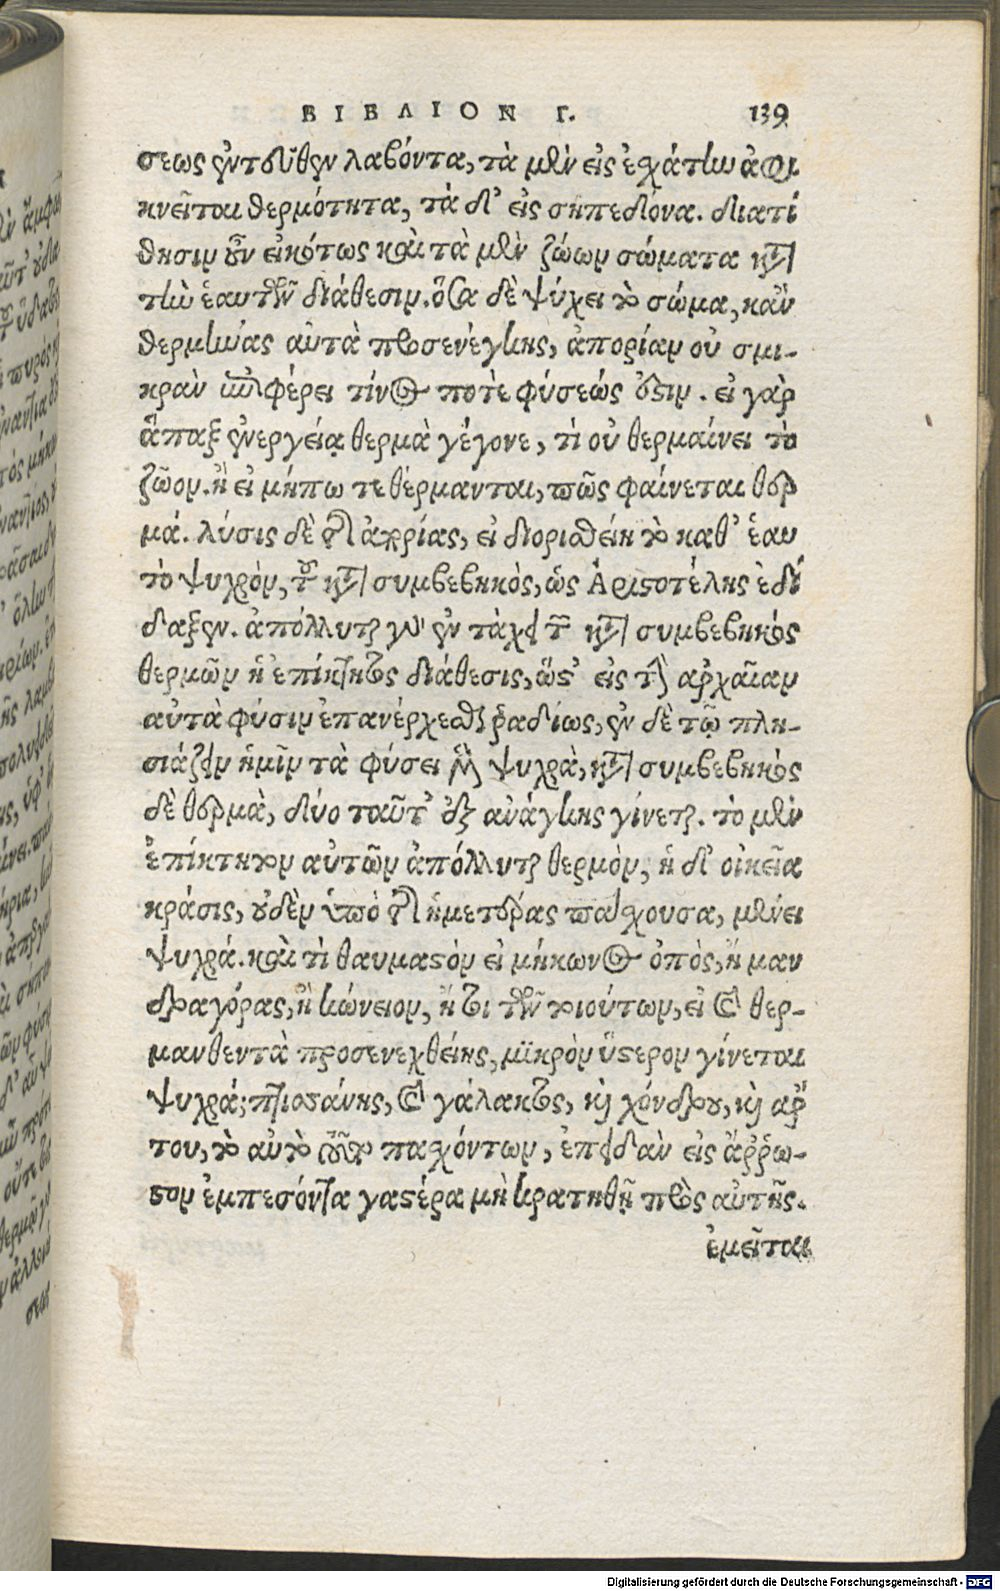 ΒΙΒΛΙΟΝ Γ. 139
σεως ἐντεῦθεν λαβόντα, τὰ μὲν εἰς ἐσχάτην ἀφι
κνεῖται θερμότητα, τὰ δ' εἰς σηπεδόνα. διατί
θησιν οὖν εἰκότως καὶ τὰ μὲν ζώων σώματα κατὰ
τὴν ἑαυτῶν διάθεσιν. ὅσα δὲ ψύχει τὸ σῶμα, κἂν
θερμήνας αὐτὰ προσενέγκης, ἀπορίαν οὐ σμι-
κρὰν ἐπιφέρει τίνος ποτὲ φύσεώς ἐστιν. εἰ γὰρ
ἅπαξ ἐνεργείᾳ θερμὰ γέγονε, τί οὐ θερμαίνει τὸ
ζῶον. ἢ εἰ μήπω τεθέρμανται, πῶς φαίνεται θερ
μά. λύσις δὲ τῆς ἀπορίας, εἰ διορισθείη τὸ καθ' ἑαυ
τὸ ψυχρὸν, τοῦ κατὰ συμβεβηκὸς, ὡς Ἀριστοτέλης ἐδί
δαξεν. ἀπόλλυται γὰρ ἐν τάχει τῶν κατὰ συμβεβηκὸς
θερμῶν ἡ ἐπίκτητος διάθεσις, ὥστ' εἰς τὴν ἀρχαῖαν
αὐτὰ φύσιν ἐπανέρχεσθαι ῥαδίως, ἐν δὲ τῷ πλη-
σιάζειν ἡμῖν τὰ φύσει μὲν ψυχρὰ, κατὰ συμβεβηκὸς
δὲ θερμὰ, δύο ταῦτ' ἐξ ἀνάγκης γίνεται. τὸ μὲν
ἐπίκτητον αὐτῶν ἀπόλλυται θερμὸν, ἡ δ' οἰκεῖα
κράσις, οὐδὲν ὑπὸ τῆς ἡμετέρας πάσχουσα, μένει
ψυχρά. καὶ τί θαυμαστὸν εἰ μήκωνος ὀπὸς, ἢ μαν
δραγόρας, ἢ κώνειον, ἤ τι τῶν τοιούτων, εἰ καὶ θερ-
μανθεντὰ προσενεχθείης, μικρὸν ὕστερον γίνεται
ψυχρά; πτισσάνης, καὶ γάλακτος, καὶ χόνδρου, καὶ ἄρ
του, τὸ αὐτὸ τοῦτο πασχόντων, ἐπειδὰν εἰς ἄῤῥω-
στον ἐμπεσόντα γαστέρα μὴ κρατηθῇ πρὸς αὐτῆς.
ἐμεῖται